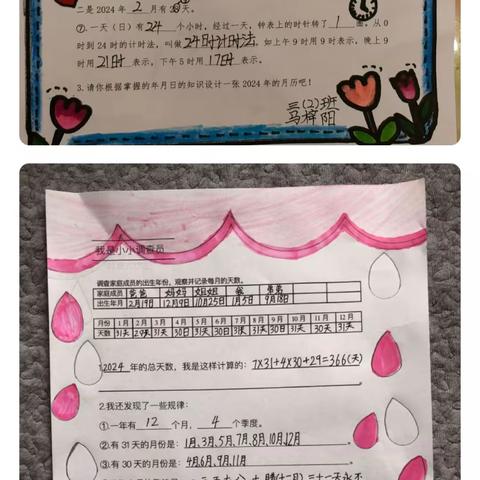 二是2024年 2 月有 天
⑦.一天(日)有24个小时,经过一天,钟表上的时针转了 1 圈。从0
时到24时的计时法,叫做24时计时法。如上午9时用9时表示,晚上9
时用21时表示,下午5时用17时表示。
3.请你根据掌握的年月日的知识设计一张2024年的月历吧!
三(2)班
马梓阳
我是小小调查员
调查家庭成员的出生年份,观察并记录每月的天数。
家庭成员 爸爸 妈妈 姐姐 爷 弟弟
出生年月 2月19日 12月9日 10月25日 1月5日 9月18日
月份 1月 2月 3月 4月 5月 6月 7月 8月 9月 10月 11月 12月
天数 31天 29天 31天 30日 31天 30日 31天 31天 30日 31天 30天 31天
1.2024年的总天数,我是这样计算的:7×31+4×30+29=366(天)
2.我还发现了一些规律:
①.一年有 12 个月, 4 个季度。
②.有31天的月份是:1月、3月、5月、7月、8月、10月、12月。
③.有30天的月份是:4月、6月、9月、11月